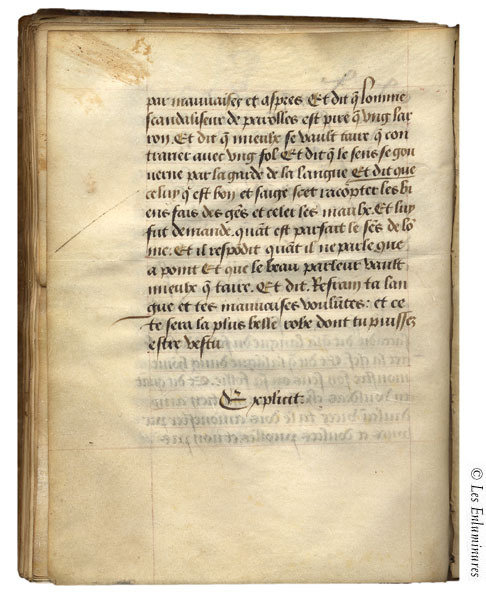 par mauuaises et aspres Et dit q̃ lomme
scandaliseur de parolles est pire q̃ vng lar
ron. Et dit q̃ mieulx se vault taire q̃ con
traicter auec vng fol Et dit q̃ le sens se gou
uerne par la garde de la langue Et dit que
celuy q̃ est bon et saige scet racõpter les bi
ens fais des gẽs et celer les maulx. Et luy
fut demande. quãt est parfait le sẽs de lõ
me. Et il respõdit quãt il ne parle que
a point Et que le beau parleur vault
mieulx q̃ taire. Et dit. Refrain ta lan
gue et tes mauuaises voulũtes: et ce
te sera la plus belle robe dont tu puisses
estre vestu
Explicit:
© Les Enluminures